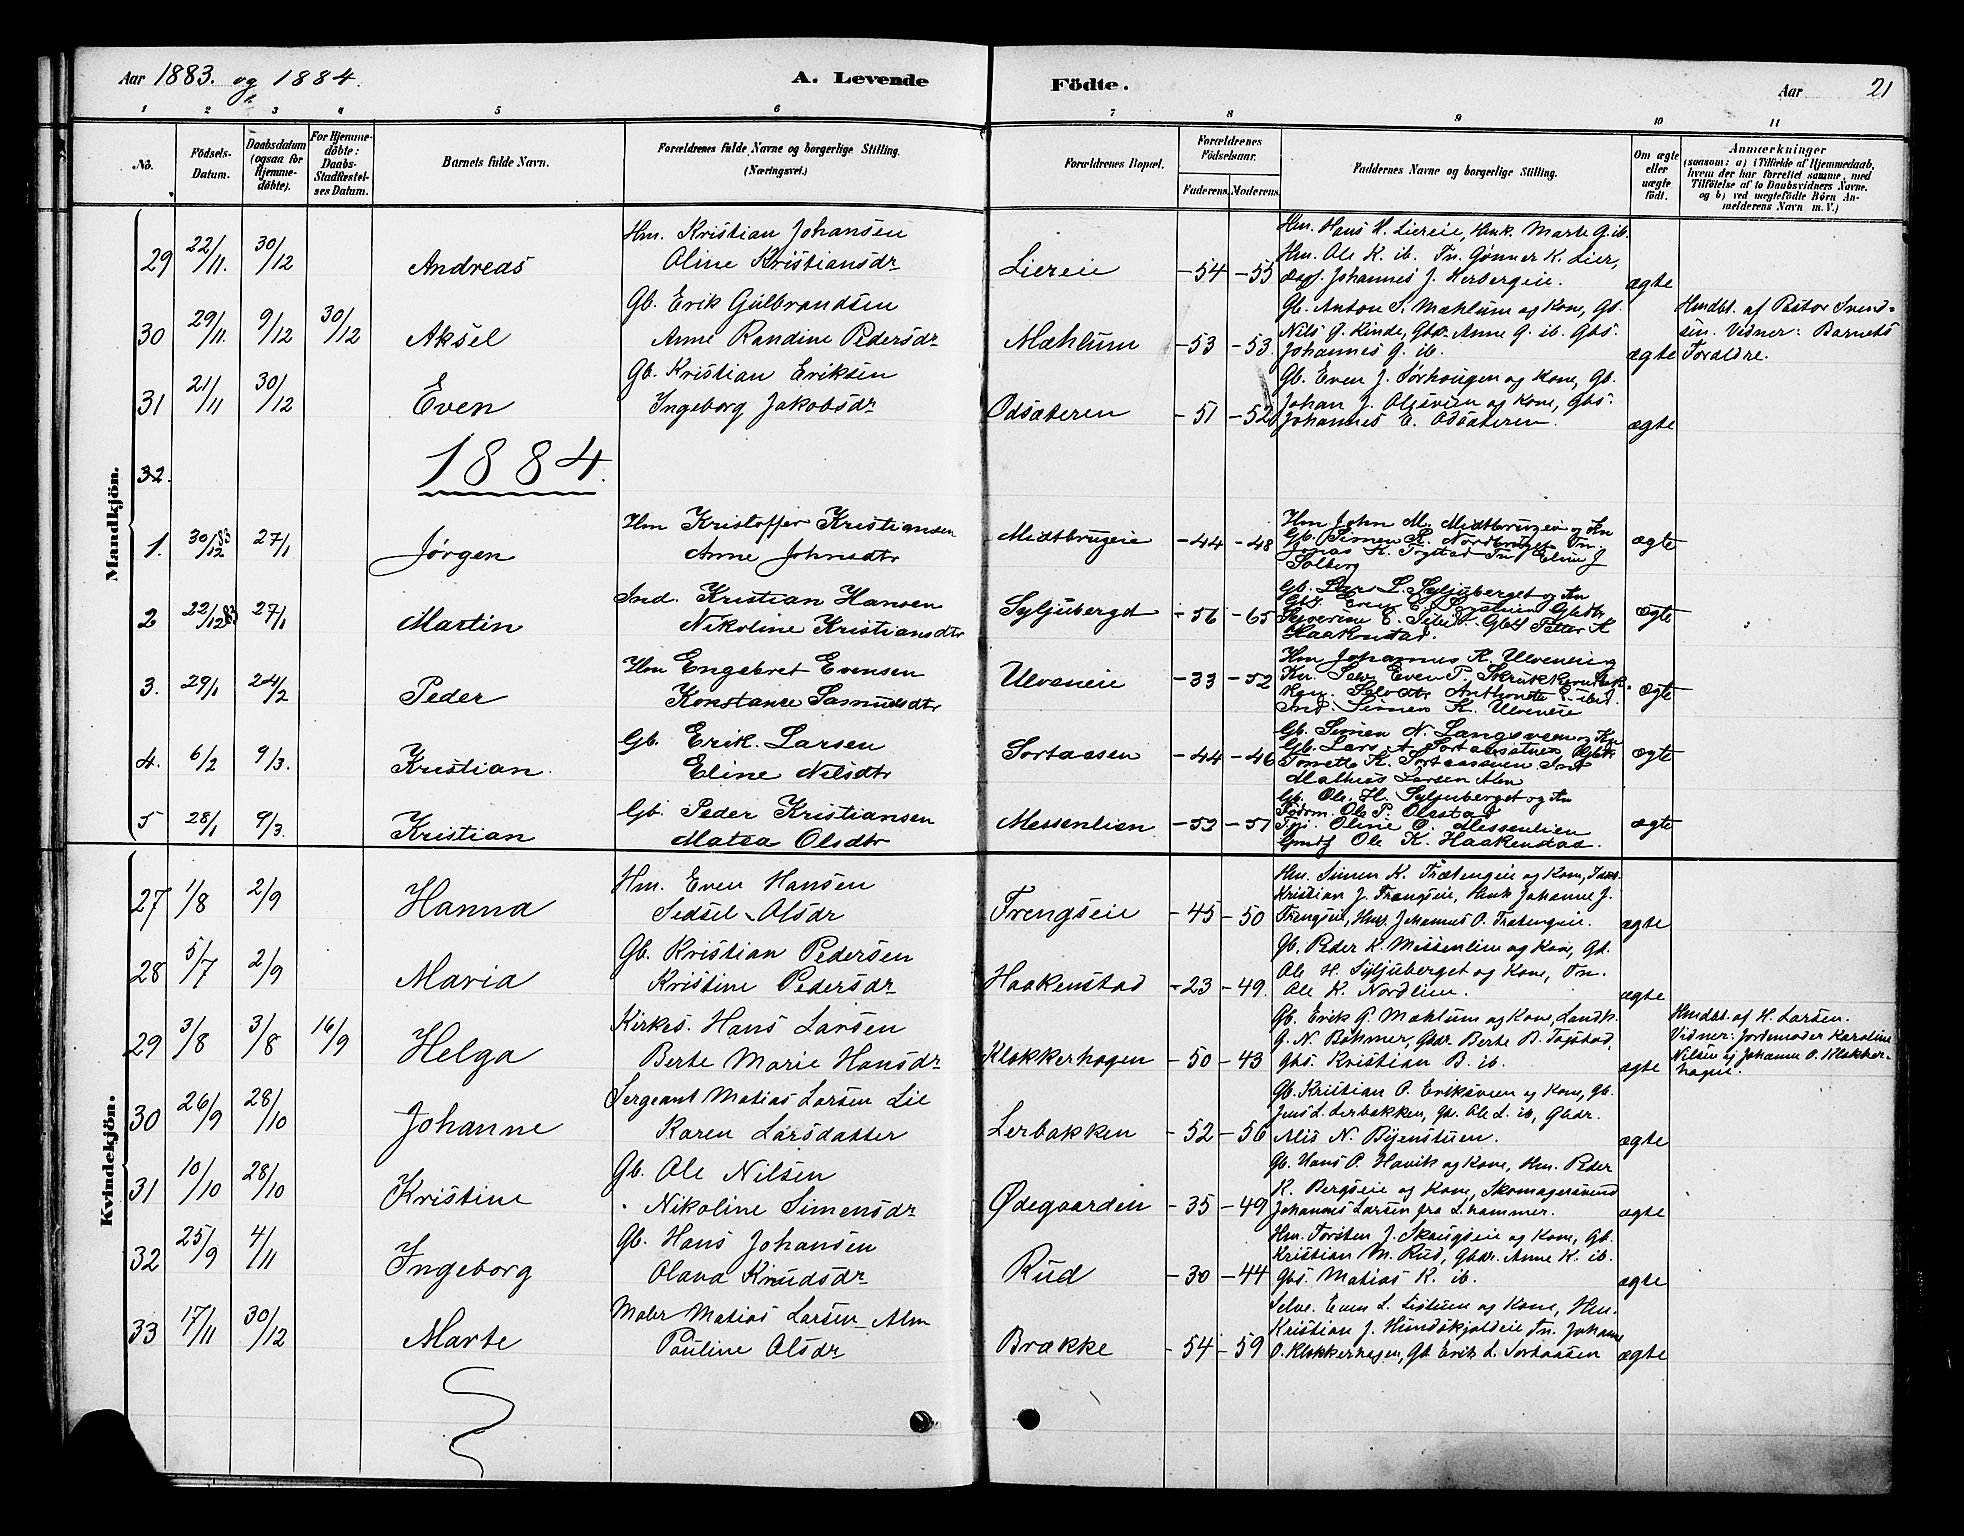 Aar 1883. og 1884.
A. Levende
Födte.
Aar 21
1 2 3 4 5 6 7 8 9 10 11
No.
Födsels-Datum.
Daabsdatum (ogsaa for Hjemme-döbte).
For Hjemme-döbte: Daabs-Stadfæstel-ses Datum.
Barnets fulde Navn.
Forældrenes fulde Navne og borgerlige Stilling.
(Næringsvei.)
Forældrenes Bopæl.
Forældrenes Födselsaar.
Faderens. Moderens.
Faddernes Navne og borgerlige Stilling.
Om ægte eller uægte födt.
Anmærkninger
(saasom: a) i Tilfælde af Hjemmedaab,
hvem der har forrettet samme, med
Tilföielse af to Daabsvidners Navne,
og b) ved uægtefödte Börn An-
melderens Navn m. V.)
Mandkjön.
29 22/11. 30/12 Andreas
Hm. Kristian Johansen
Oline Kristiansdr
Liereie -54 -55
Hm. Hans H. Liereie, Hmk. Marte G. ib.
Hm. Ole K. ib. Tn. Gønner K. Lier,
Johannes J. Herbergeie.
ægte
30 29/11. 9/12 30/12 Aksel
Gb. Erik Gulbrandsen
Anne Randine Pedersdr
Mæhlum -53 -53.
Gb. Anton S. Mæhlum og Kone, Gb.
Nils G. Kinde, Gbdr. Anne G. ib. Gbs.
Johannes G. ib.
ægte
Hmdbt. af Pastor Svend-
sen. Vidner: Barnets
Forældre.
31 21/11 30/12 Even
Gb. Kristian Eriksen
Ingeborg Jakobsdr
Odsæteren -51 -52
Gb. Even J. Sørhougen og Kone, Gb.
Johan J. Olesveen og Kone, Gbs.
Johannes E. Odsæteren.
ægte
32.
1884.
1. 30/12 83 27/1 Jørgen
Hm Kristoffer Kristiansen
Anne Johnsdtr
Midtbrugeie -44 -48
Hm John M. Midtbrugeie og Kn
Gb. Simen K. Nordbruget Tn.
Jonas K. Togstad Tn. Eline J
Solberg
ægte
2 22/12 83 27/1 Martin
Ind. Kristian Hansen
Nikoline Kristiansdtr
Syljubergd -56 -65
Gb. Lars L. Syljuberget og Kn
Haakenstad.
ægte
3. 29/1 24/2 Peder
Hm Engebret Evensen
Konstance Samuelsdtr
Ulveneie -33 -52
Hm Johannes K. Ulveneie og
Kn. Selv. Even P.
Ind. Simen K. Ulveneie
ægte
4. 6/2 9/3. Kristian.
Gb. Erik Larsen
Eline Nilsdtr
Sortaasen -44 -46
Gb. Simen N. Langsveen og Kn
Gb. Lars A. Sortaasætren
Tomette K. Sortaasveen Ind
Mathias Larsen Alm
ægte
5 28/1 9/3. Kristian
Gb. Peder Kristiansen
Matea Olsdtr
Messenlien -53 -51
Gb. Ole H. Syljuberget og Kn
Ole P. Olestad
Oline O. Messenlien
Ole K. Haakenstad.
ægte
Kvindekjön.
27 1/8 2/9 Hanna
Hm. Even Hansen
Sedsel Olsdr
Trengseie -45 -50
Hm. Simen K. Trætengeie og Kone, Ind.
Kristian J. Trængseie, Hmk Johanne J.
Trengseie, Hms. Johannes O. Trætengeie.
ægte
28 5/7 2/9 Maria
Gb. Kristian Pedersen
Kristine Pedersdr
Haakenstad -23 -49.
Gb. Peder K. Messenlien og Kone, Gb.
Ole H. Syljuberget og Kone, Tn.
Ole K. Nordlien.
ægte
29 3/8 3/8 16/9 Helga
Kirkes. Hans Larsen
Berte Marie Hansdr
Klokkerhagen -50 -43
Gb. Erik G. Mæhlum og Kone, Landh.
G. N. Bøhmer, Gbdr. Berte B. Togstad,
Gbs. Kristian B. ib.
ægte
Hmdbt. af H. Larsen.
Vidner: Jordemoder Karoline
Nilsen og Johanne O. Klokker-
hagen.
30 26/9 28/10 Johanne
Sergeant Matias Larsen Lie
Karen Larsdatter
Lerbakken -52 -56
Gb. Kristian O. Eriksveen og Kone, Gb.
Jens L. Lerbakken, Gbs. Ole L. ib, Gbdr.
Alis N. Byenstuen.
ægte
31 10/10 28/10 Kristine
Gb. Ole Nilsen
Nikoline Simensdr
Ødegaarden -35 -49
Gb. Hans P. Havik og Kone, Hm. Peder
K. Bergseie og Kone, Skomagersvend
Johannes Larsen fra L.hammer.
ægte
32 25/9 4/11 Ingeborg
Gb. Hans Johansen
Olava Knudsdr
Rud -30 -44
Hm. Torsten J. Skaugseie og Kone, Gb.
Kristian M. Rud, Gbdr. Anne K. ib.
Gbs. Matias K. ib.
ægte
33 17/11 30/12 Marte
Maler Matias Larsen Alm
Pauline Olsdr
Brække -54 -59
Selve. Even L. Listuen og Kone, Hm.
Kristian J. Hundskjoldeie Tn. Johanne
O. Klokkerhagen, Gb. Erik L. Sortaasen
ægte